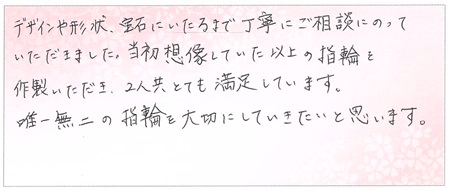 デザインや形状、宝石にいたるまで丁寧にご相談にのって
いただきました。当初想像していた以上の指輪を
作製いただき、2人共とても満足しています。
唯一無二の指輪を大切にしていきたいと思います。